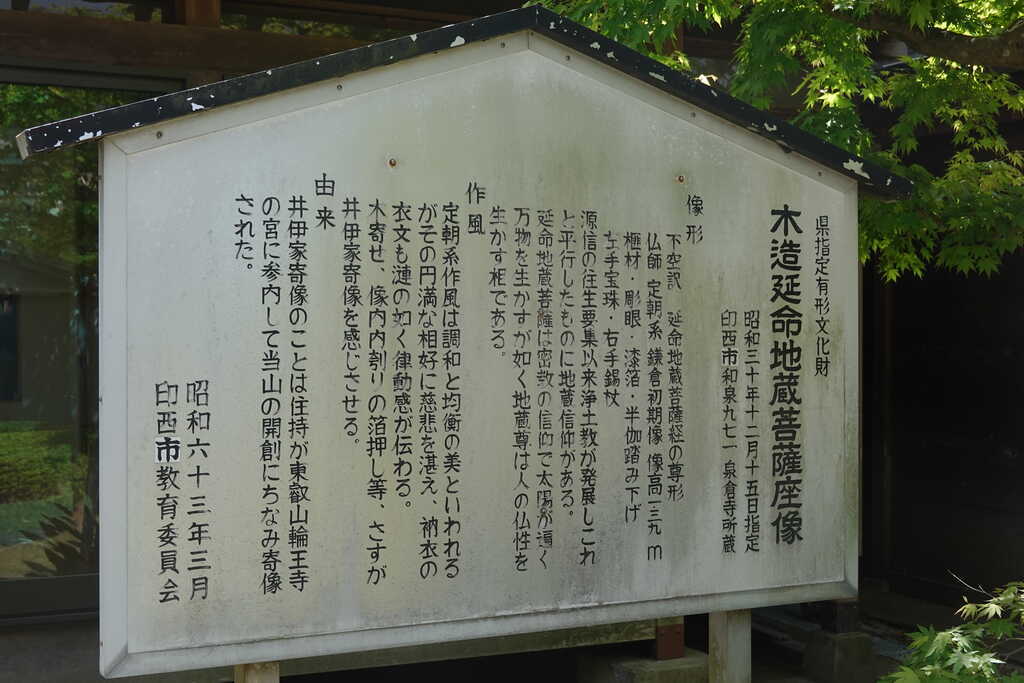 県指定有形文化財
木造延命地蔵菩薩座像
昭和三十年十二月十五日指定
印西市和泉九七一 泉倉寺所蔵
像形
不空訳 延命地蔵菩薩経の尊形
仏師 定朝系 鎌倉初期像 像高一三九m
榧材・彫眼・漆箔・半伽踏み下げ
左手宝珠・右手錫杖
源信の往生要集以来浄土教が発展しこれ
と平行したものに地蔵信仰がある。
延命地蔵菩薩は密教の信仰で太陽が遍く
万物を生かすが如く地蔵尊は人の仏性を
生かす柜である。
作風
定朝系作風は調和と均衡の美といわれる
がその円満な相好に慈悲を湛え、衲衣の
衣文も漣の如く律動感が伝わる。
木寄せ、像内内刳りの箔押し等、さすが
井伊家寄像を感じさせる。
由来
井伊家寄像のことは住持が東叡山輪王寺
の宮に参内して当山の開創にちなみ寄像
された。
昭和六十三年三月
印西市教育委員会